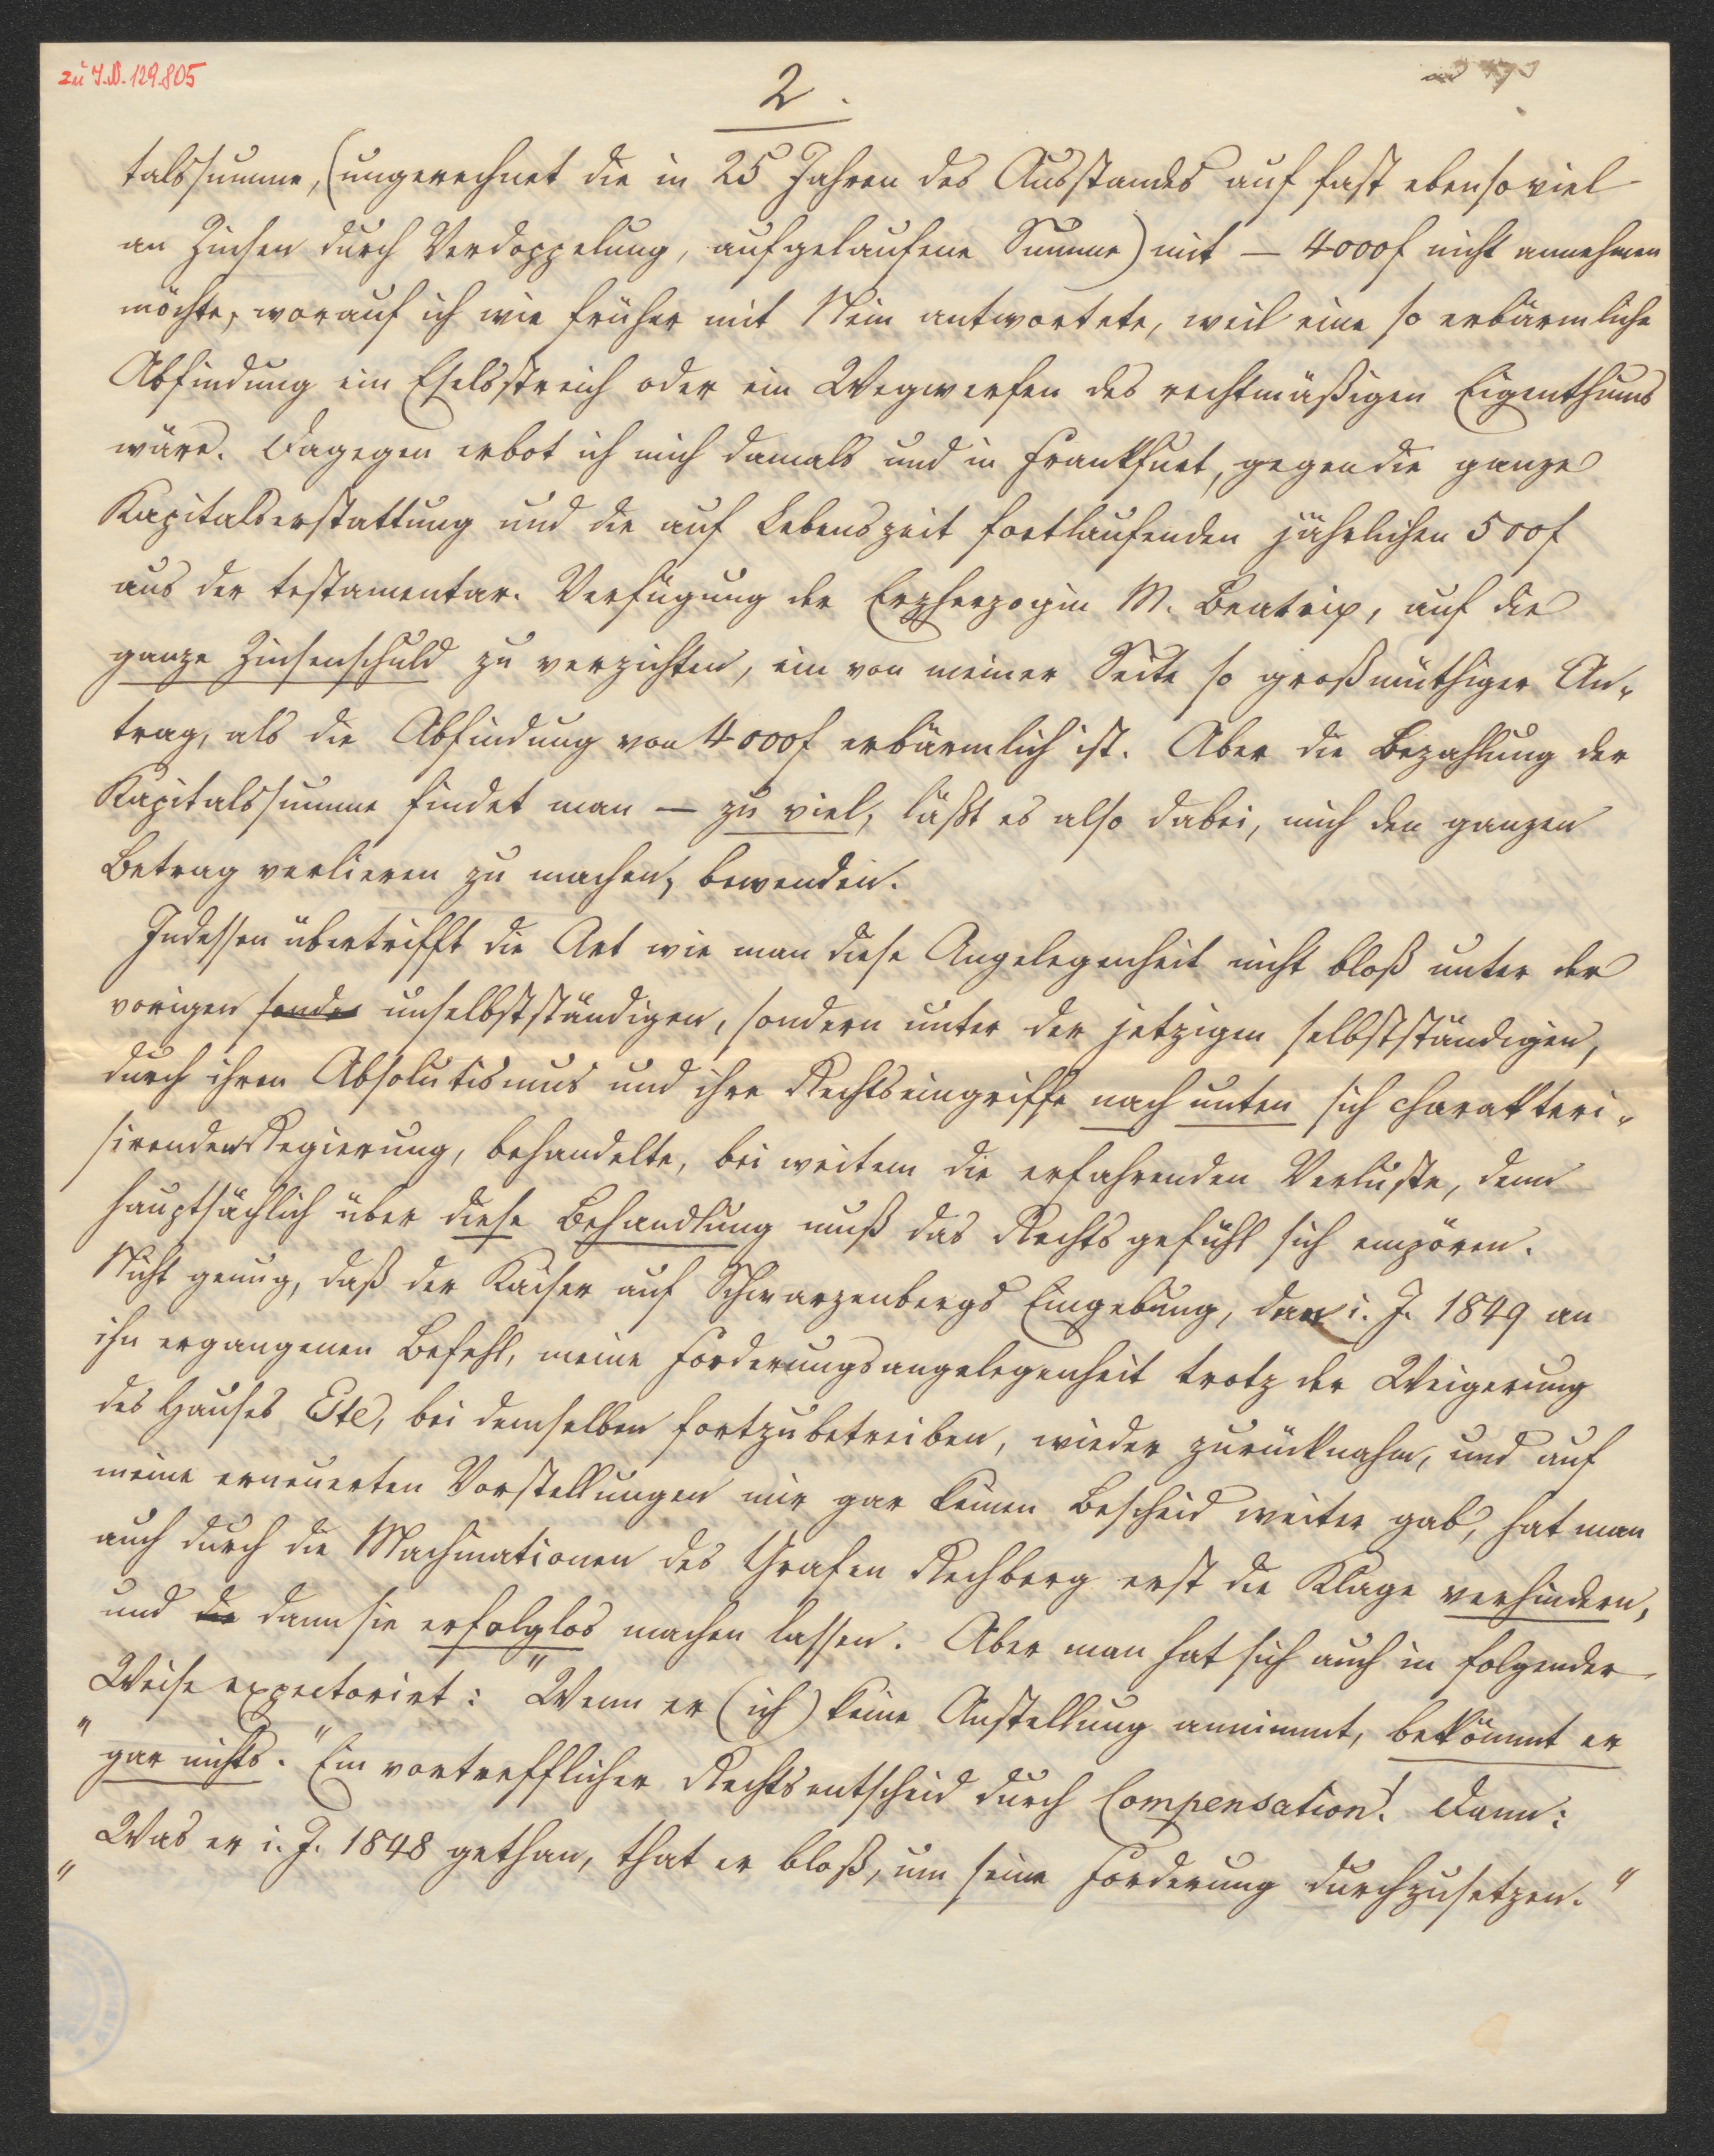 zu I.N. 129.805
2.
talssumme, (ungerechnet die in 25 Jahren des Ausstandes auf fast ebensoviel
an Zinsen durch Verdoppelung, aufgelaufene Summe) mit — 4000f nicht annehmen
möchte, worauf ich wie früher mit Nein antwortete, weil eine so erbärmliche
Abfindung ein Eselsstreich oder ein Wegwerfen des rechtmäßigen Eigenthums
wäre. Dagegen erbot ich mich damals und in Frankfurt, gegen die ganze
Kapitalserstattung und die auf Lebenszeit fortlaufenden jährlichen 500f
aus der testamentar. Verfügung der Erzherzogin M. Beatrix, auf die
ganze Zinsenschuld zu verzichten, ein von meiner Seite so großmüthiger An-
trag, als die Abfindung von 4000f erbärmlich ist. Aber die Bezahlung der
Kapitalssumme findet man — zu viel, läßt es also dabei, mich den ganzen
Betrag verlieren zu machen, bewenden.
Indessen übertrifft die Art wie man diese Angelegenheit nicht bloß unter der
vorigen sonder unselbstständigen, sondern unter der jetzigen selbstständigen,
durch ihren Absolutismus und ihre Rechtseingriffe nach unten sich charakteri-
sirenden Regierung, behandelte, bei weitem die erfahrenden Verluste, denn
hauptsächlich über diese Behandlung muß das Rechtsgefühl sich empören.
Nicht genug, daß der Kaiser auf Schwarzenbergs Eingebung, den i. J. 1849 an
ihn ergangenen Befehl, meine Forderungsangelegenheit trotz der Weigerung
des Hauses Este, bei demselben fortzubetreiben, wieder zurücknahm, und auf
meine erneuerten Vorstellungen mir gar keinen Bescheid weiter gab, hat man
auch durch die Machinationen des Grafen Rechberg erst die Klage verhindern,
und die dann sie erfolglos machen lassen. Aber man hat sich auch in folgender
Weise expectorirt: "Wenn er (ich) keine Anstellung annimmt, bekömmt er
"gar nichts." Ein vortrefflicher Rechtsentscheid durch Compensation! Dann:
"Was er i. J. 1848 gethan, that er bloß, um seine Forderung durchzusetzen."